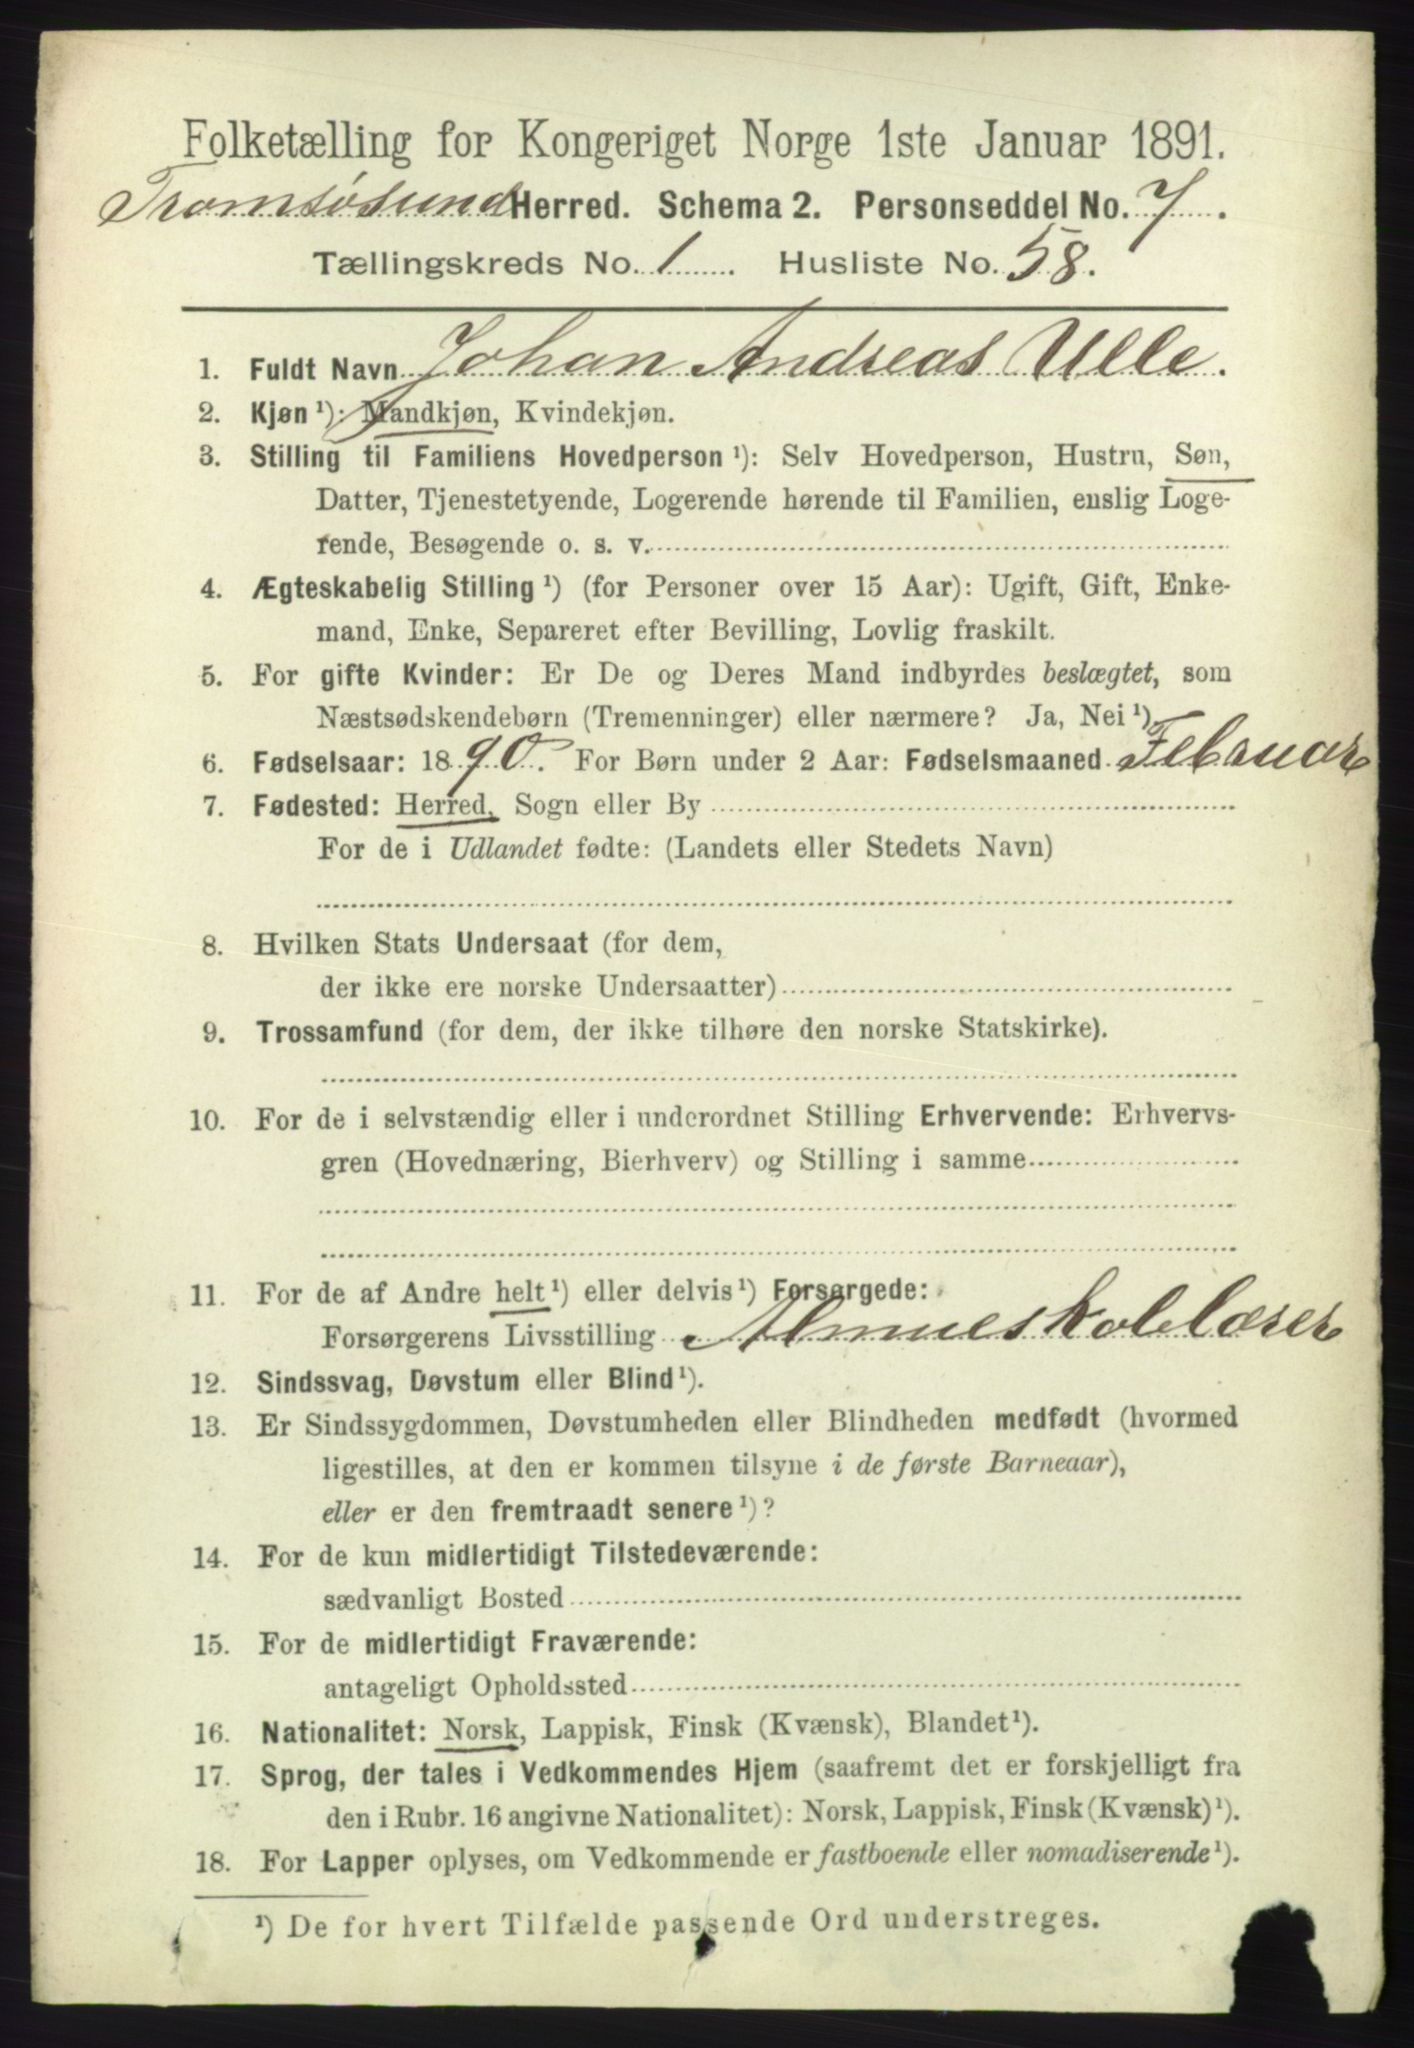 Folketælling for Kongeriget Norge 1ste Januar 1891.
Tromsøsund Herred. Schema 2. Personseddel No. 7.
Tællingskreds No. 1. Husliste No. 58.
1. Fuldt Navn Johan Andreas Ulle.
2. Kjøn ¹): Mandkjøn, Kvindekjøn.
3. Stilling til Familiens Hovedperson ¹): Selv Hovedperson, Hustru, Søn,
Datter, Tjenestetyende, Logerende hørende til Familien, enslig Loge-
rende, Besøgende o. s. v.
4. Ægteskabelig Stilling ¹) (for Personer over 15 Aar): Ugift, Gift, Enke-
mand, Enke, Separeret efter Bevilling, Lovlig fraskilt.
5. For gifte Kvinder: Er De og Deres Mand indbyrdes beslægtet, som
Næstsødskendebørn (Tremenninger) eller nærmere? Ja, Nei ¹).
6. Fødselsaar: 1890. For Børn under 2 Aar: Fødselsmaaned Februar
7. Fødested: Herred, Sogn eller By
For de i Udlandet fødte: (Landets eller Stedets Navn)
8. Hvilken Stats Undersaat (for dem,
der ikke ere norske Undersaatter)
9. Trossamfund (for dem, der ikke tilhøre den norske Statskirke).
10. For de i selvstændig eller i underordnet Stilling Erhvervende: Erhvervs-
gren (Hovednæring, Bierhverv) og Stilling i samme
11. For de af Andre helt ¹) eller delvis ¹) Forsørgede:
Forsørgerens Livsstilling Almueskolelærer
12. Sindssvag, Døvstum eller Blind ¹).
13. Er Sindssygdommen, Døvstumheden eller Blindheden medfødt (hvormed
ligestilles, at den er kommen tilsyne i de første Barneaar),
eller er den fremtraadt senere ¹)?
14. For de kun midlertidigt Tilstedeværende:
sædvanligt Bosted
15. For de midlertidigt Fraværende:
antageligt Opholdssted
16. Nationalitet: Norsk, Lappisk, Finsk (Kvænsk), Blandet ¹).
17. Sprog, der tales i Vedkommendes Hjem (saafremt det er forskjelligt fra
den i Rubr. 16 angivne Nationalitet): Norsk, Lappisk, Finsk (Kvænsk) ¹).
18. For Lapper oplyses, om Vedkommende er fastboende eller nomadiserende ¹).
¹) De for hvert Tilfælde passende Ord understreges.